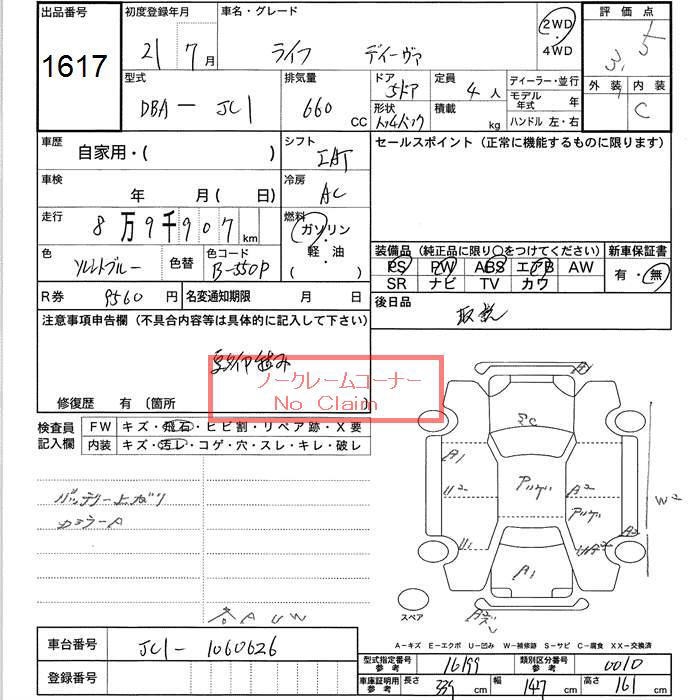 出品番号 初度登録年月 車名・グレード 2WD・4WD 評価点
1617 21 7月 ライフ ディーヴァ 3.5
型式 排気量 ドア 定員 ディーラー・並行 外装 内装
DBA－JC1 660 CC 5ドア 4人 モデル年式 年 C
形状 積載 kg ハンドル 左・右
車歴 シフト セールスポイント（正常に機能するものに限ります）
自家用・（ ）
車検 年 月（ 日） 冷房 AC
走行 8万9千907km 燃料 ガソリン・軽・油（ ）
色 色替 色コード B-550P
装備品（純正品に限り○をつけてください） 新車保証書
PS PW ABS エアB AW 有・無
SR ナビ TV カワ
R券 9560円 名変通知期限 月 日 後日品
取説
注意事項申告欄（不具合内容等は具体的に記入して下さい）
ノークレームコーナー
No Claim
修復歴 有（箇所
検査員記入欄 FW キズ・飛石・ヒビ割・リペア跡・X要
内装 キズ・汚レ・コゲ・穴・スレ・キレ・破レ
バッテリー上ガリ
A1 U2 A2 W2
A1
スペア
A－キズ E－エクボ U－凹み W－補修跡 S－サビ C－腐食 XX－交換済
車台番号 JC1-1060626
登録番号
型式指定番号 参考 16199 類別区分番号 参考 0010
車庫証明用 参考 長さ 339cm 幅 147cm 高さ 161cm